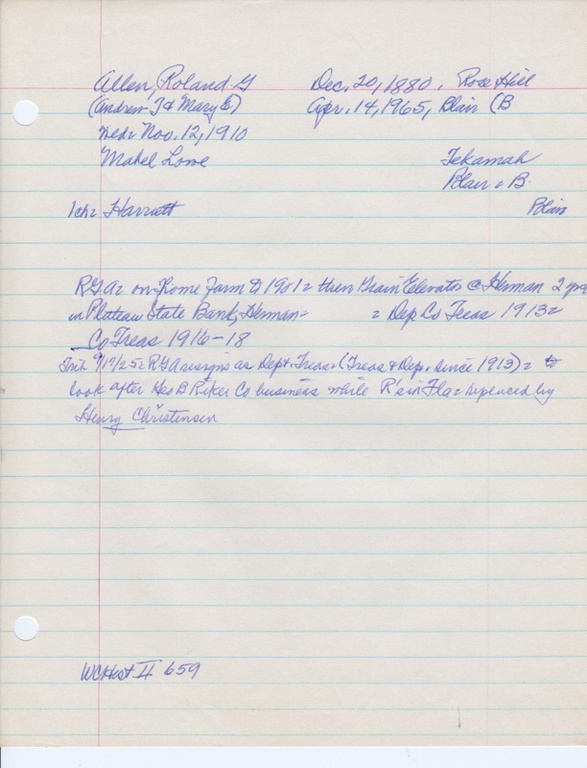 Allen, Roland G Dec. 20, 1880, Rose Hill
(Andrew J & Mary E) Apr. 14, 1965, Blair (B
Wed= Nov. 12, 1910
Mabel Lowe Tekamah
Blair = B.
1ch= Harriett Blair
RGA= on home farm to 1901= then Grain Elevator @ Herman 2 yrs
in Plateau State Bank, Herman= = Dep Co Treas 1913=
Co Treas 1916-18
9/19/25= RGA resigns as Dept. Treas= (Treas & Dep. since 1913)= to
look after Geo B Riker Co business while R's in Fla= replaced by
Henry Christensen
WCHist II 659